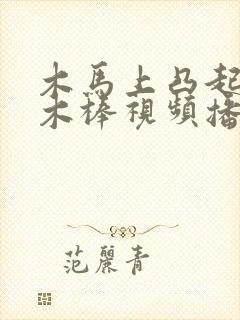 木馬上凸起
木棒視頻播
范麗青